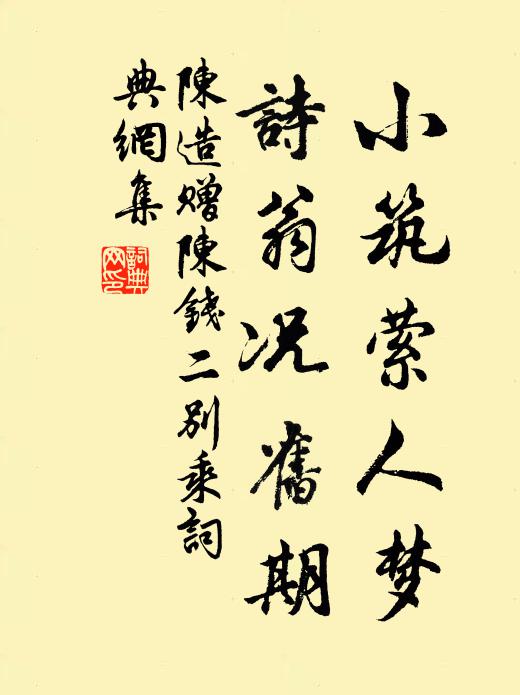 小筑萦人梦
詩翁况舊期
陳造贈陳錢二別乘詞
典網集
詞典
网印